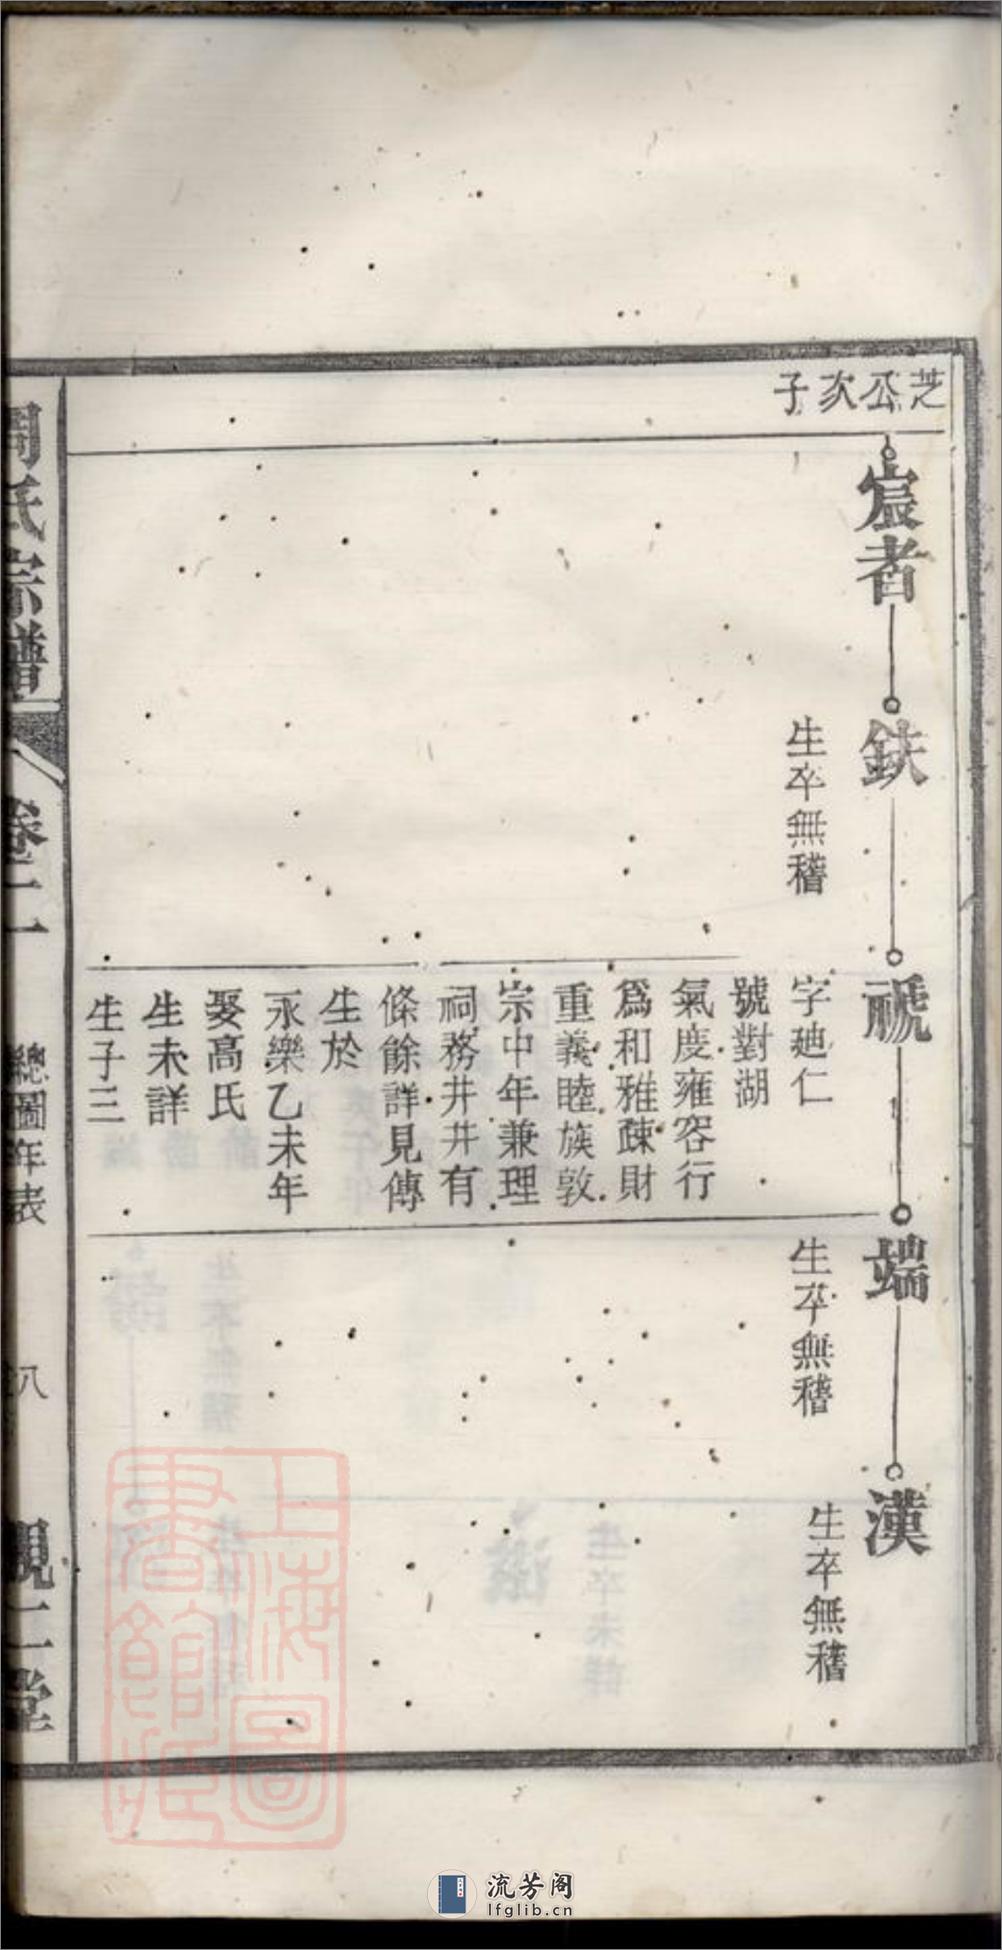 芝公次子
宸者
鈇
生卒無稽
禠
字廸仁
號對湖
氣度雍容行
爲和雅疎財
重義睦族敦
宗中年兼理
祠務井井有
條餘詳見傳
生於
永樂乙未年
娶高氏
生未詳
生子三
端
生卒無稽
漢
生卒無稽
周氏宗譜
卷二
總圖年表
八
親仁堂
上海圖書館藏
流芳阁
lfglib.cn